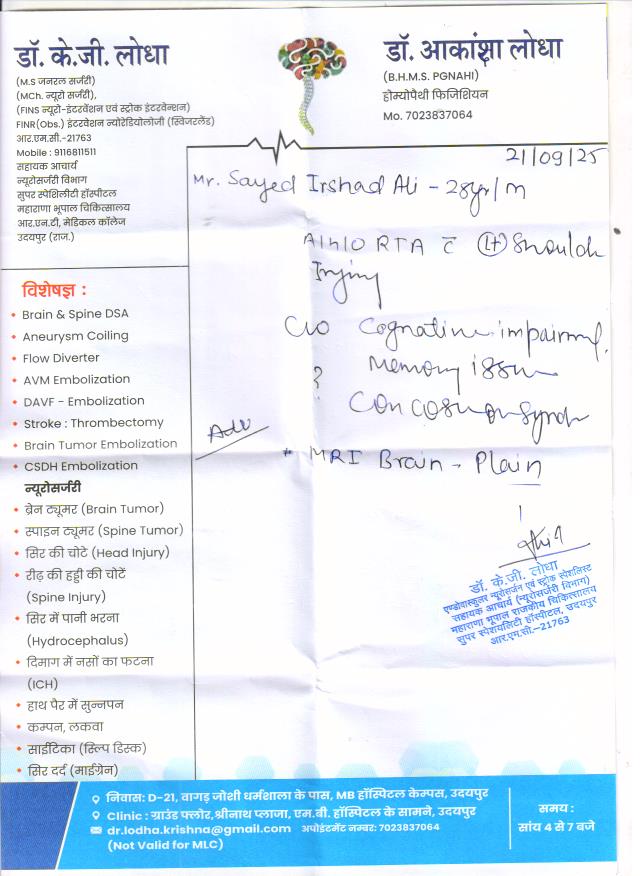 डॉ. के.जी. लोधा
(M.S जनरल सर्जरी)
(MCh. न्यूरो सर्जरी),
(FINS न्यूरो-इंटरवेंशन एवं स्ट्रोक इंटरवेन्शन)
FINR(Obs.) इंटरवेंशन न्योरेडियोलोजी (स्विजरलैंड)
आर.एम.सी.-21763
Mobile : 9116811511
सहायक आचार्य
न्यूरोसर्जरी विभाग
सुपर स्पेशिलिटी हॉस्पीटल
महाराणा भूपाल चिकित्सालय
आर.एन.टी, मेडिकल कॉलेज
उदयपुर (राज.)
डॉ. आकांक्षा लोधा
(B.H.M.S. PGNAHI)
होम्योपैथी फिजिशियन
Mo. 7023837064
21/09/25
Mr. Sayed Irshad Ali - 28yr/m
A/h/o RTA c̄ (Lt) Shoulder
Injury
C/o Cognative impairment,
Memory issue
? Concossion Syndr
Adv
* MRI Brain - Plain
विशेषज्ञ :
Brain & Spine DSA
Aneurysm Coiling
Flow Diverter
AVM Embolization
DAVF - Embolization
Stroke : Thrombectomy
Brain Tumor Embolization
CSDH Embolization
न्यूरोसर्जरी
ब्रेन ट्यूमर (Brain Tumor)
स्पाइन ट्यूमर (Spine Tumor)
सिर की चोटें (Head Injury)
रीढ़ की हड्डी की चोटें
(Spine Injury)
सिर में पानी भरना
(Hydrocephalus)
दिमाग में नसों का फटना
(ICH)
हाथ पैर में सुन्नपन
कम्पन, लकवा
साईटिका (स्लिप डिस्क)
सिर दर्द (माईग्रेन)
डॉ. के.जी. लोधा
एण्डोवास्कुलर न्यूरोसर्जन एवं स्ट्रोक स्पेशलिस्ट
सहायक आचार्य (न्यूरोसर्जरी विभाग)
महाराणा भूपाल राजकीय चिकित्सालय
सुपर स्पेशयलिटी हॉस्पीटल, उदयपुर
आर.एम.सी.-21763
निवास: D-21, वागड़ जोशी धर्मशाला के पास, MB हॉस्पिटल केम्पस, उदयपुर
Clinic : ग्राउंड फ्लोर, श्रीनाथ प्लाजा, एम.बी. हॉस्पिटल के सामने, उदयपुर
dr.lodha.krishna@gmail.com अपोईंटमेंट नम्बर: 7023837064
(Not Valid for MLC)
समय :
सांय 4 से 7 बजे